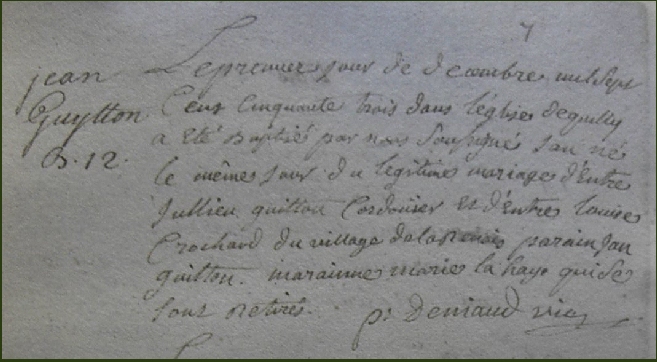 7
jean
Guytton
B. 12.
Le premier jour de decembre mil sept
Cent Cinquante trois dans l'église de quilly
a Eté Baptisé par nous Soussigné Jan né
le même jour du legitime mariage d'Entre
Jullien guitton Cordonier et d'Entre louise
Crochard du village de la parain Jan
guitton. marainne marie la haye qui se
sont retirés. p: Deniaud vic